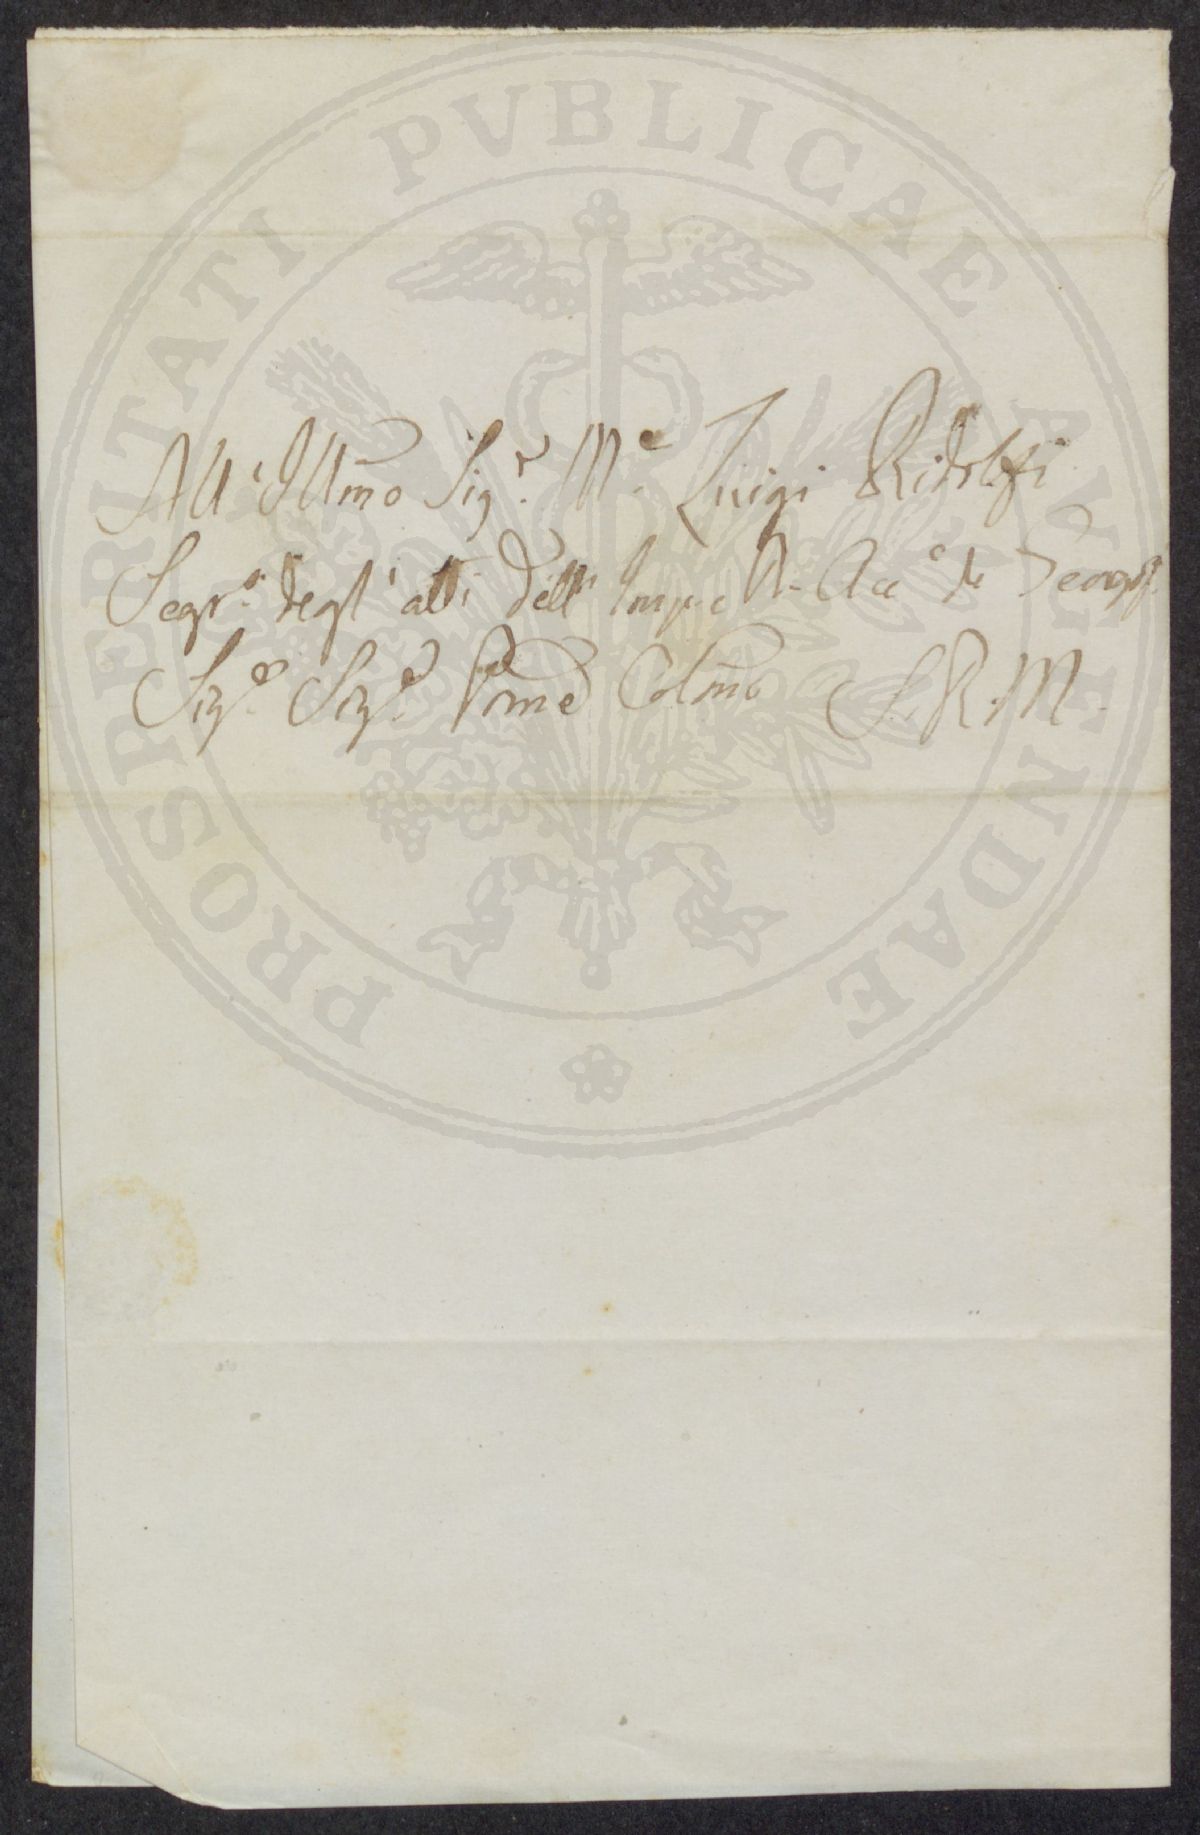 PROSPERITATI PUBLICAE AVGENDAE
All'Illmo Sigr. Me. Luigi Ridolfi
Segro. degl'atti dell' Imp. e R. Acce. de Georgf.
Sigre. Sigre. Prone Colmo S.R.M.